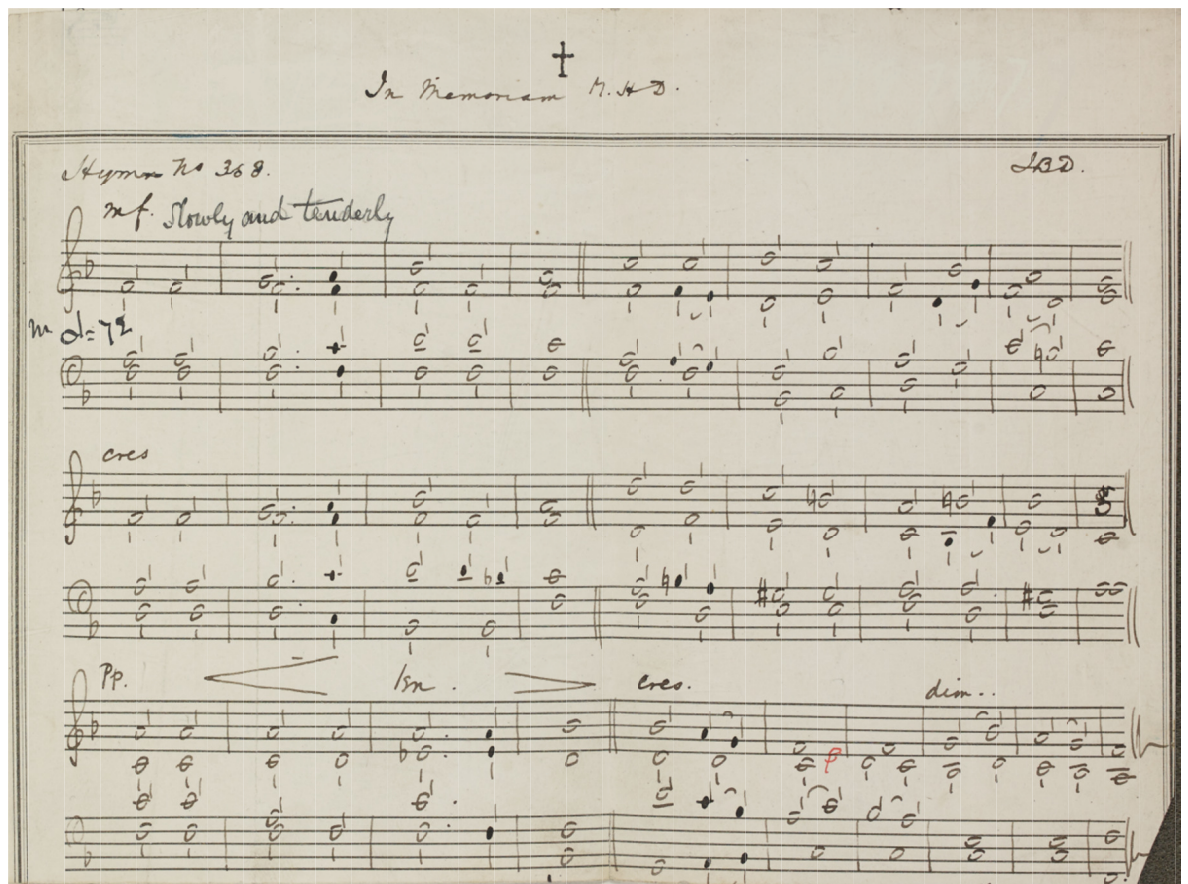 In Memoriam M. H. D.
Hymn No 368.
J.B.D.
mf. Slowly and tenderly
m = 72
cres
pp.
cres.
dim..
p